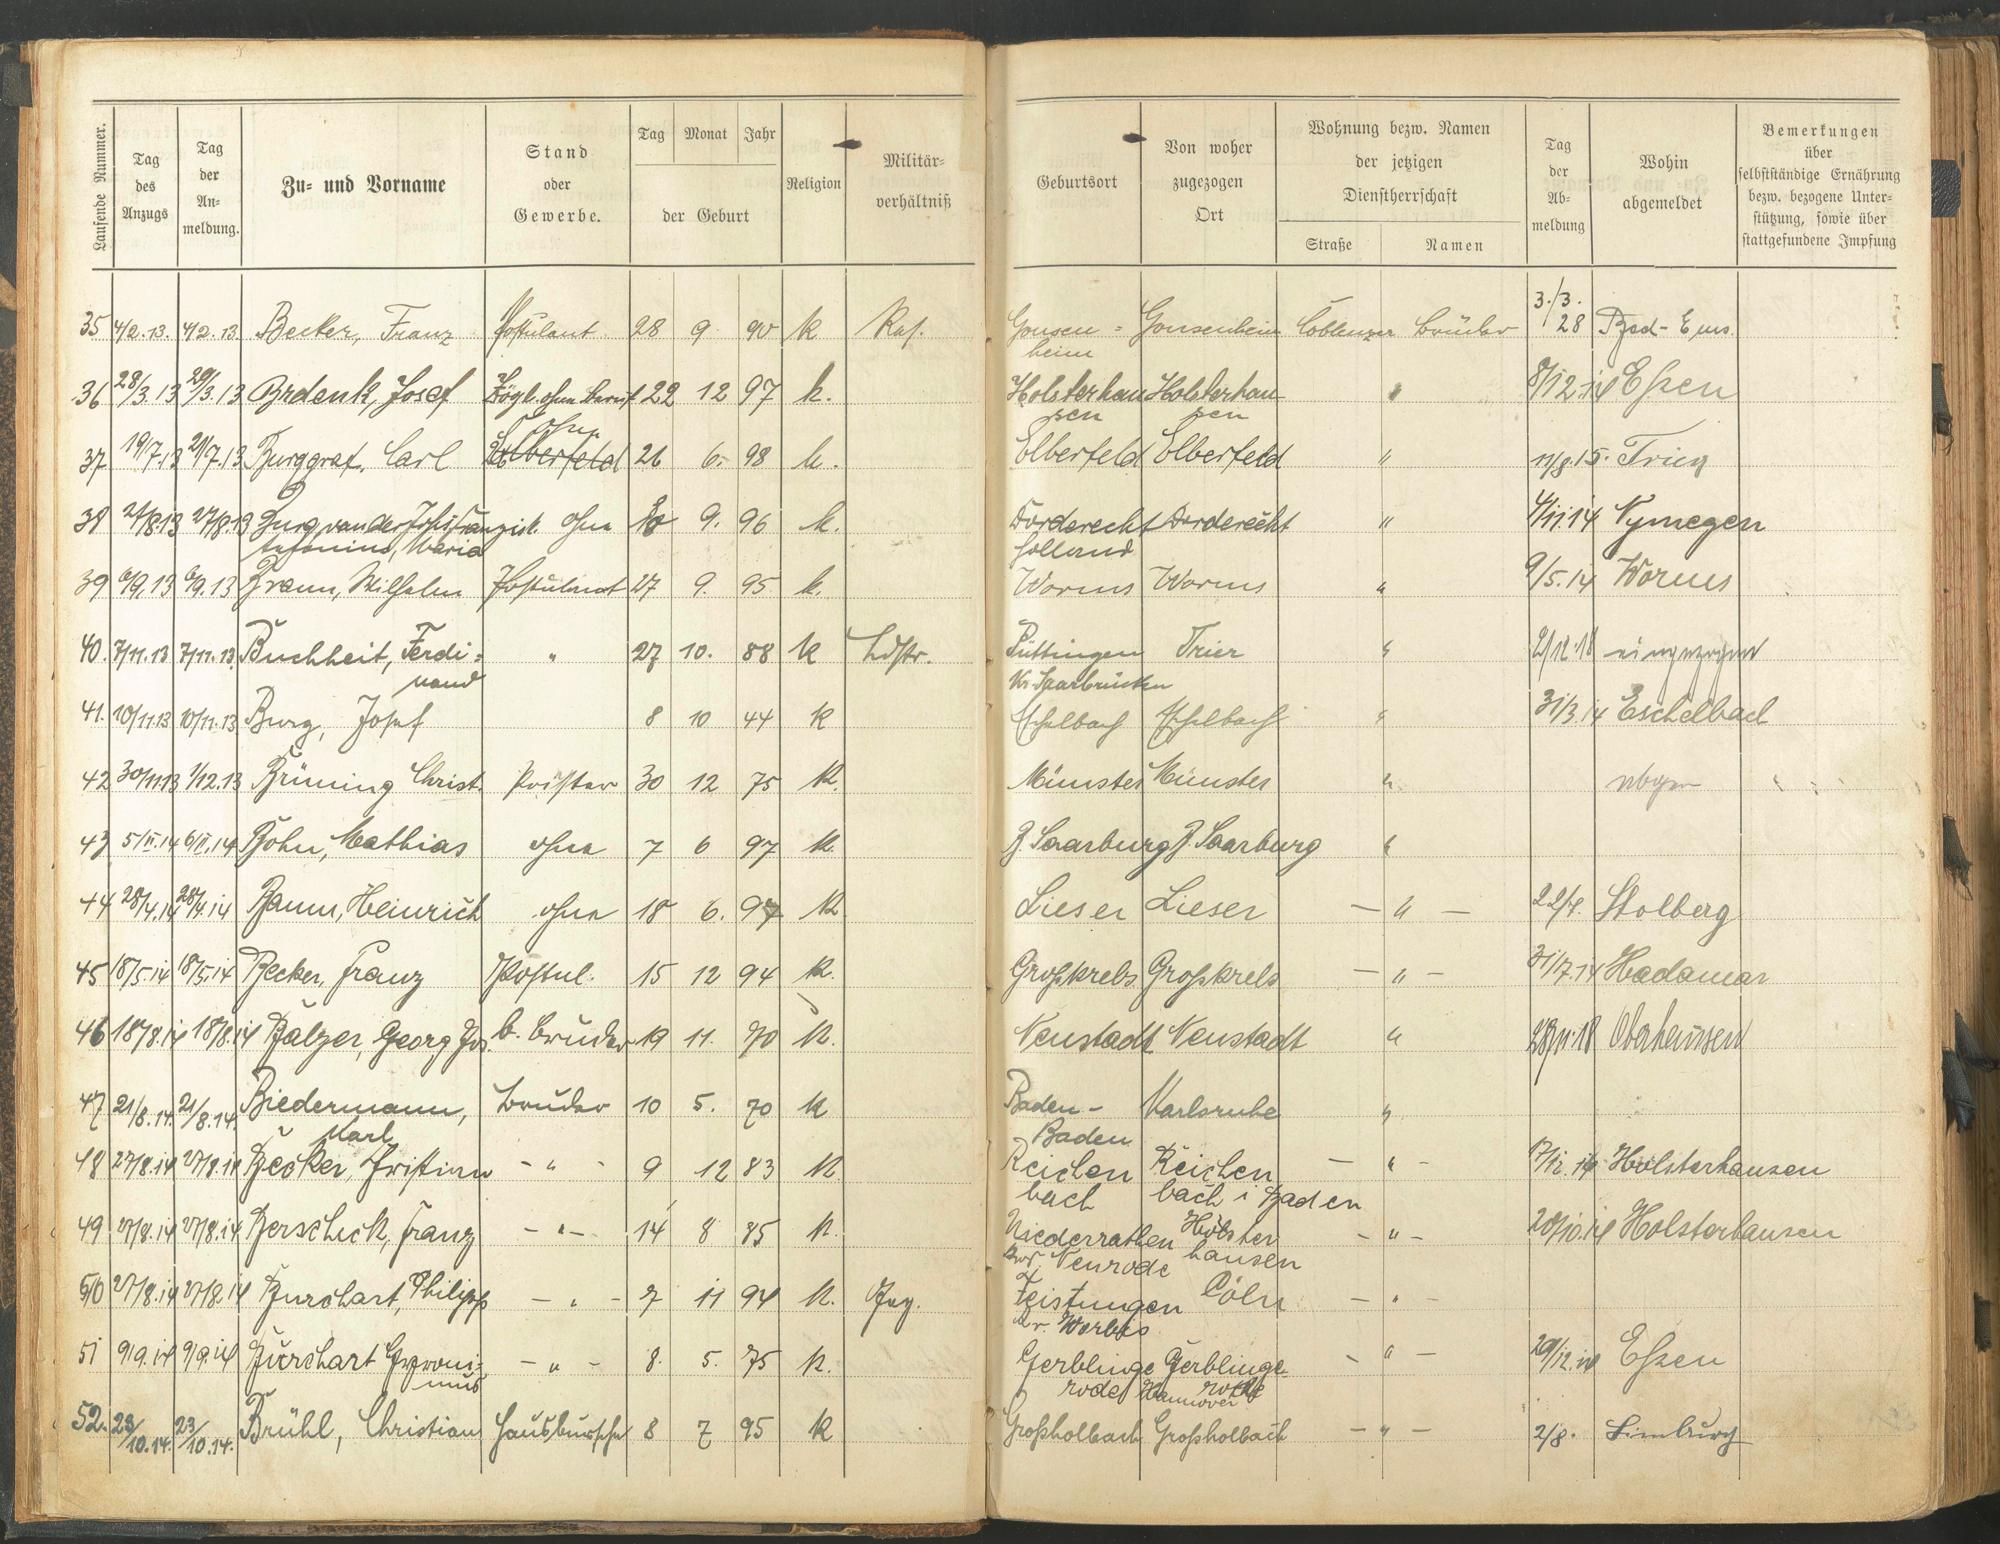 Laufende Nummer. Tag des Anzugs Tag der An-meldung. Zu- und Vorname Stand oder Gewerbe. Tag Monat Jahr der Geburt Religion Militär-verhältniß Geburtsort Von woher zugezogen Ort Wohnung bezw. Namen der jetzigen Dienstherrschaft Straße Namen Tag der Ab-meldung Wohin abgemeldet Bemerkungen über selbstständige Ernährung bezw. bezogene Unter-stützung, sowie über stattgefundene Impfung
35 4/2.13. 4/2.13 Becker, Franz Postulant 28 9 90 k Ras. Gonsen= Gonsenheim Coblenzer Brüder 3./3. 28 Bad-Ems.
heim
36 28/3.13 29/3.13 Josef Zögl. ohne Beruf 22 12 97 k. Holsterhau Holsterhau " 8/12.14 Eßen
sen sen
ohne
37 19/7.13 21/7.13 Burggraf, Carl Elberfeld 26 6. 98 k. Elberfeld Elberfeld " 11/8.15. Trier
38 27/8.13 27/8.13 Burg, van der Johs Franzisk. ohne 10 9. 96 k. Dorderecht Dorderecht " 4/11.14 Nymegen
Antonius, Maria Holland
39 6/9.13 6/9.13 Braun, Wilhelm Postulant 27 9. 95 k. Worms Worms " 9/5.14 Worms
40. 7/11.13 7/11.13. Buchheit, Ferdi= " 27 10. 88 k Ldstr. Püttingen Trier " 2/12.18 eingezogen
nand Kr. Saarbrücken
41. 10/11.13 10/11.13 Burg, Josef 8 10 44 k Eschelbach Eschelbach " 31/3.14 Eschelbach
42 30/11.13 1/12.13 Brüning Christ. Priester 30 12 75 k. Münster Münster "
43 5/II.14 6/II.14 Bohn, Mathias ohne 7 6 97 k. B. Saarburg B. Saarburg "
44 28/4.14 28/4.14 Baum, Heinrich ohne 18 6. 97 k. Lieser Lieser — " — 22/4. Stolberg
45 18/5.14 18/5.14 Becker, Franz Postul. 15 12 94 k. Großkrebs Großkrebs — " — 31/7.14 Hadamar
46 18/8.14 18/8.14 Balzer, Georg Jos. b. Bruder 19 11. 70 k. Neustadt Neustadt " 28/11.18 Oberhausen
47 21/8.14. 21/8.14. Biedermann, Bruder 10 5. 70 k Baden- Karlsruhe "
Karl Baden
48 27/8.14 27/8.14 Becker, Christian - " - 9 12 83 k. Reichen Reichen — " - 17/12.14 Holsterhausen
bach bach i Baden
49 27/8.14 27/8.14 Berschick, Franz - " - 14 8 85 k. Niederrathen Holster - " - 20/10.14 Holsterhausen
Neurode hausen
50 27/8.14 27/8.14 Burchart, Philipp - " - 7 11 94 k. Teistungen Cöln — " -
Kr. Worbis
51 9/9.14 9/9.14 Burchart Hyroni= - " - 8. 5. 75 k. Gerblinge Gerblinge - " - 29/12.14 Eßen
mus rode Hannover rode
52. 23/10.14. 23/10.14. Brühl, Christian Hausbursche 8 7 95 k Großholbach Großholbach — " — 2/8. Limburg